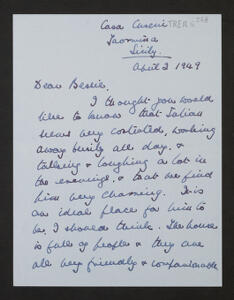 Casa Cuseni TREM 6/268
Taormina
Sicily.
April 2 1949
Dear Bessie,
I thought you would
like to know that Julian
seems very contented, working
away busily all day, &
talking & laughing a lot in
the evenings, & that we find
him very charming. It is
an ideal place for him to
be, I should think. The house
is full of people & they are
all very friendly & companionable